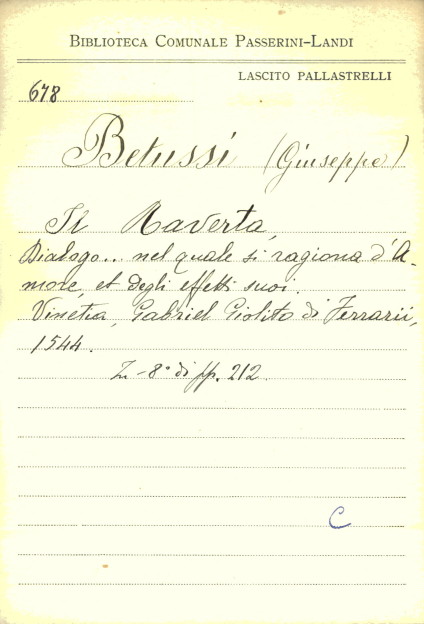 BIBLIOTECA COMUNALE PASSERINI-LANDI
LASCITO PALLASTRELLI
678
Betussi (Giuseppe)
Il Raverta,
Dialogo... nel quale si ragiona d'A-
more, et degli effetti suoi.
Vinetia, Gabriel Giolito di Ferrarii,
1544.
In-8° di pp. 212.
C